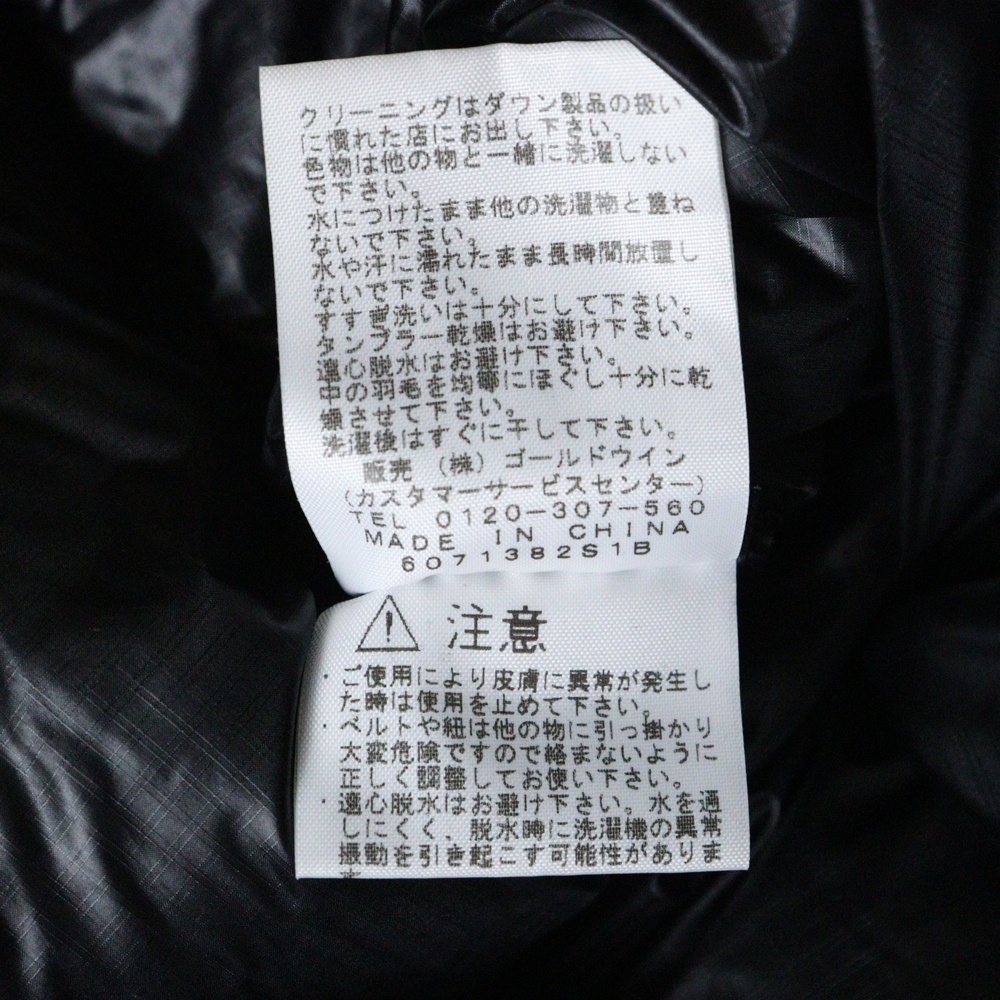 クリーニングはダウン製品の扱い
に慣れた店にお出し下さい。
色物は他の物と一緒に洗濯しない
で下さい。
水につけたまま他の洗濯物と重ね
ないで下さい。
水や汗に濡れたまま長時間放置し
ないで下さい。
すすぎ洗いは十分にして下さい。
タンブラー乾燥はお避け下さい。
遠心脱水はお避け下さい。
中の羽毛を均等にほぐし十分に乾
燥させて下さい。
洗濯後はすぐに干して下さい。
販売 (株) ゴールドウイン
(カスタマーサービスセンター)
TEL 0120-307-560
MADE IN CHINA
6071382S1B
注意
・ご使用により皮膚に異常が発生し
た時は使用を止めて下さい。
・ベルトや紐は他の物に引っ掛かり
大変危険ですので絡まないように
正しく調整してお使い下さい。
・遠心脱水はお避け下さい。水を通
しにくく、脱水時に洗濯機の異常
振動を引き起こす可能性がありま